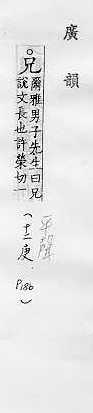 廣韻
兄
爾雅男子先生曰兄
說文長也許榮切一
(十二庚 P186)
平聲